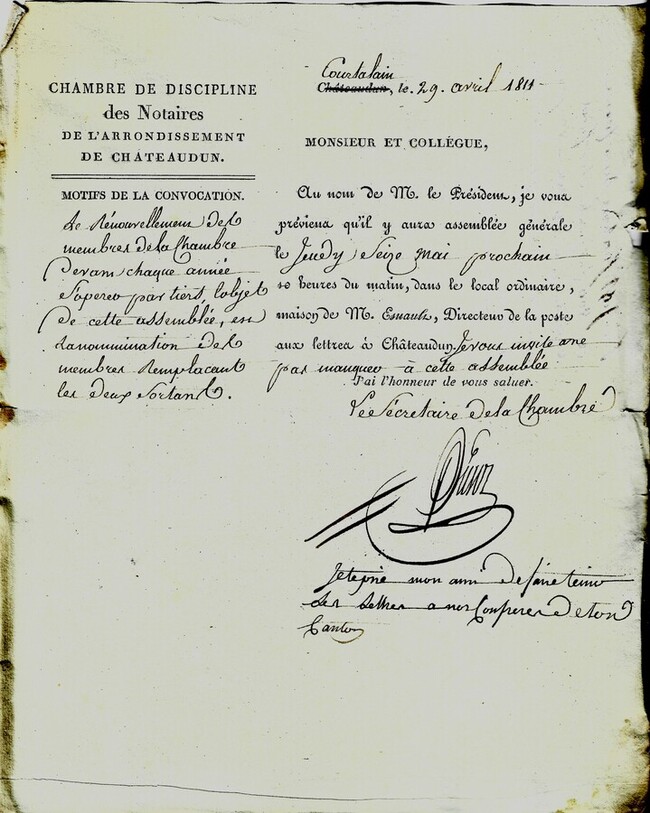 CHAMBRE DE DISCIPLINE
des Notaires
DE L'ARRONDISSEMENT
DE CHÂTEAUDUN.
MOTIFS DE LA CONVOCATION.
Le Rénouvellement des
membres de la Chambre
devant chaque année
s'opérer par tiers, l'objet
de cette assemblée, est
la nommination des
membres Remplaçant
les deux Sortans.
Courtalain
Châteaudun, le 29. avril 1811
MONSIEUR ET COLLÈGUE,
Au nom de M. le Président, je vous
préviens qu'il y aura assemblée générale
le Jeudy Seize mai prochain
10 heures du matin, dans le local ordinaire,
maison de M. Esnault, Directeur de la poste
aux lettres à Châteaudun. Je vous invite a ne
pas manquer à cette assemblée
J'ai l'honneur de vous saluer.
Le Sécrétaire de la Chambre
Je te prie mon ami de faire tenir
Les Lettres a nos Confreres de ton
Canton